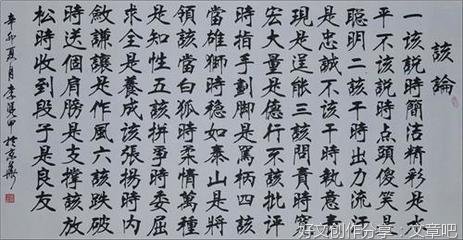 該論
一該説時簡潔精彩是水
平不該説時点頭傻笑是
聰明二該干時出力流汗
是忠誠不該干時執意表
現是逞能三該問責時寬
宏大量是德行不該批評
時指手劃脚是罵柄四該
當雄獅時穩如泰山是將
領該當白狐時柔情萬種
是知性五該拼爭時委屈
求全是養成該張揚時内
斂謙讓是作風六該跌破
時送個肩膀是支撐該放
松時收到段子是良友
辛卯夏月李甲於京華
好文创作分享：文章吧